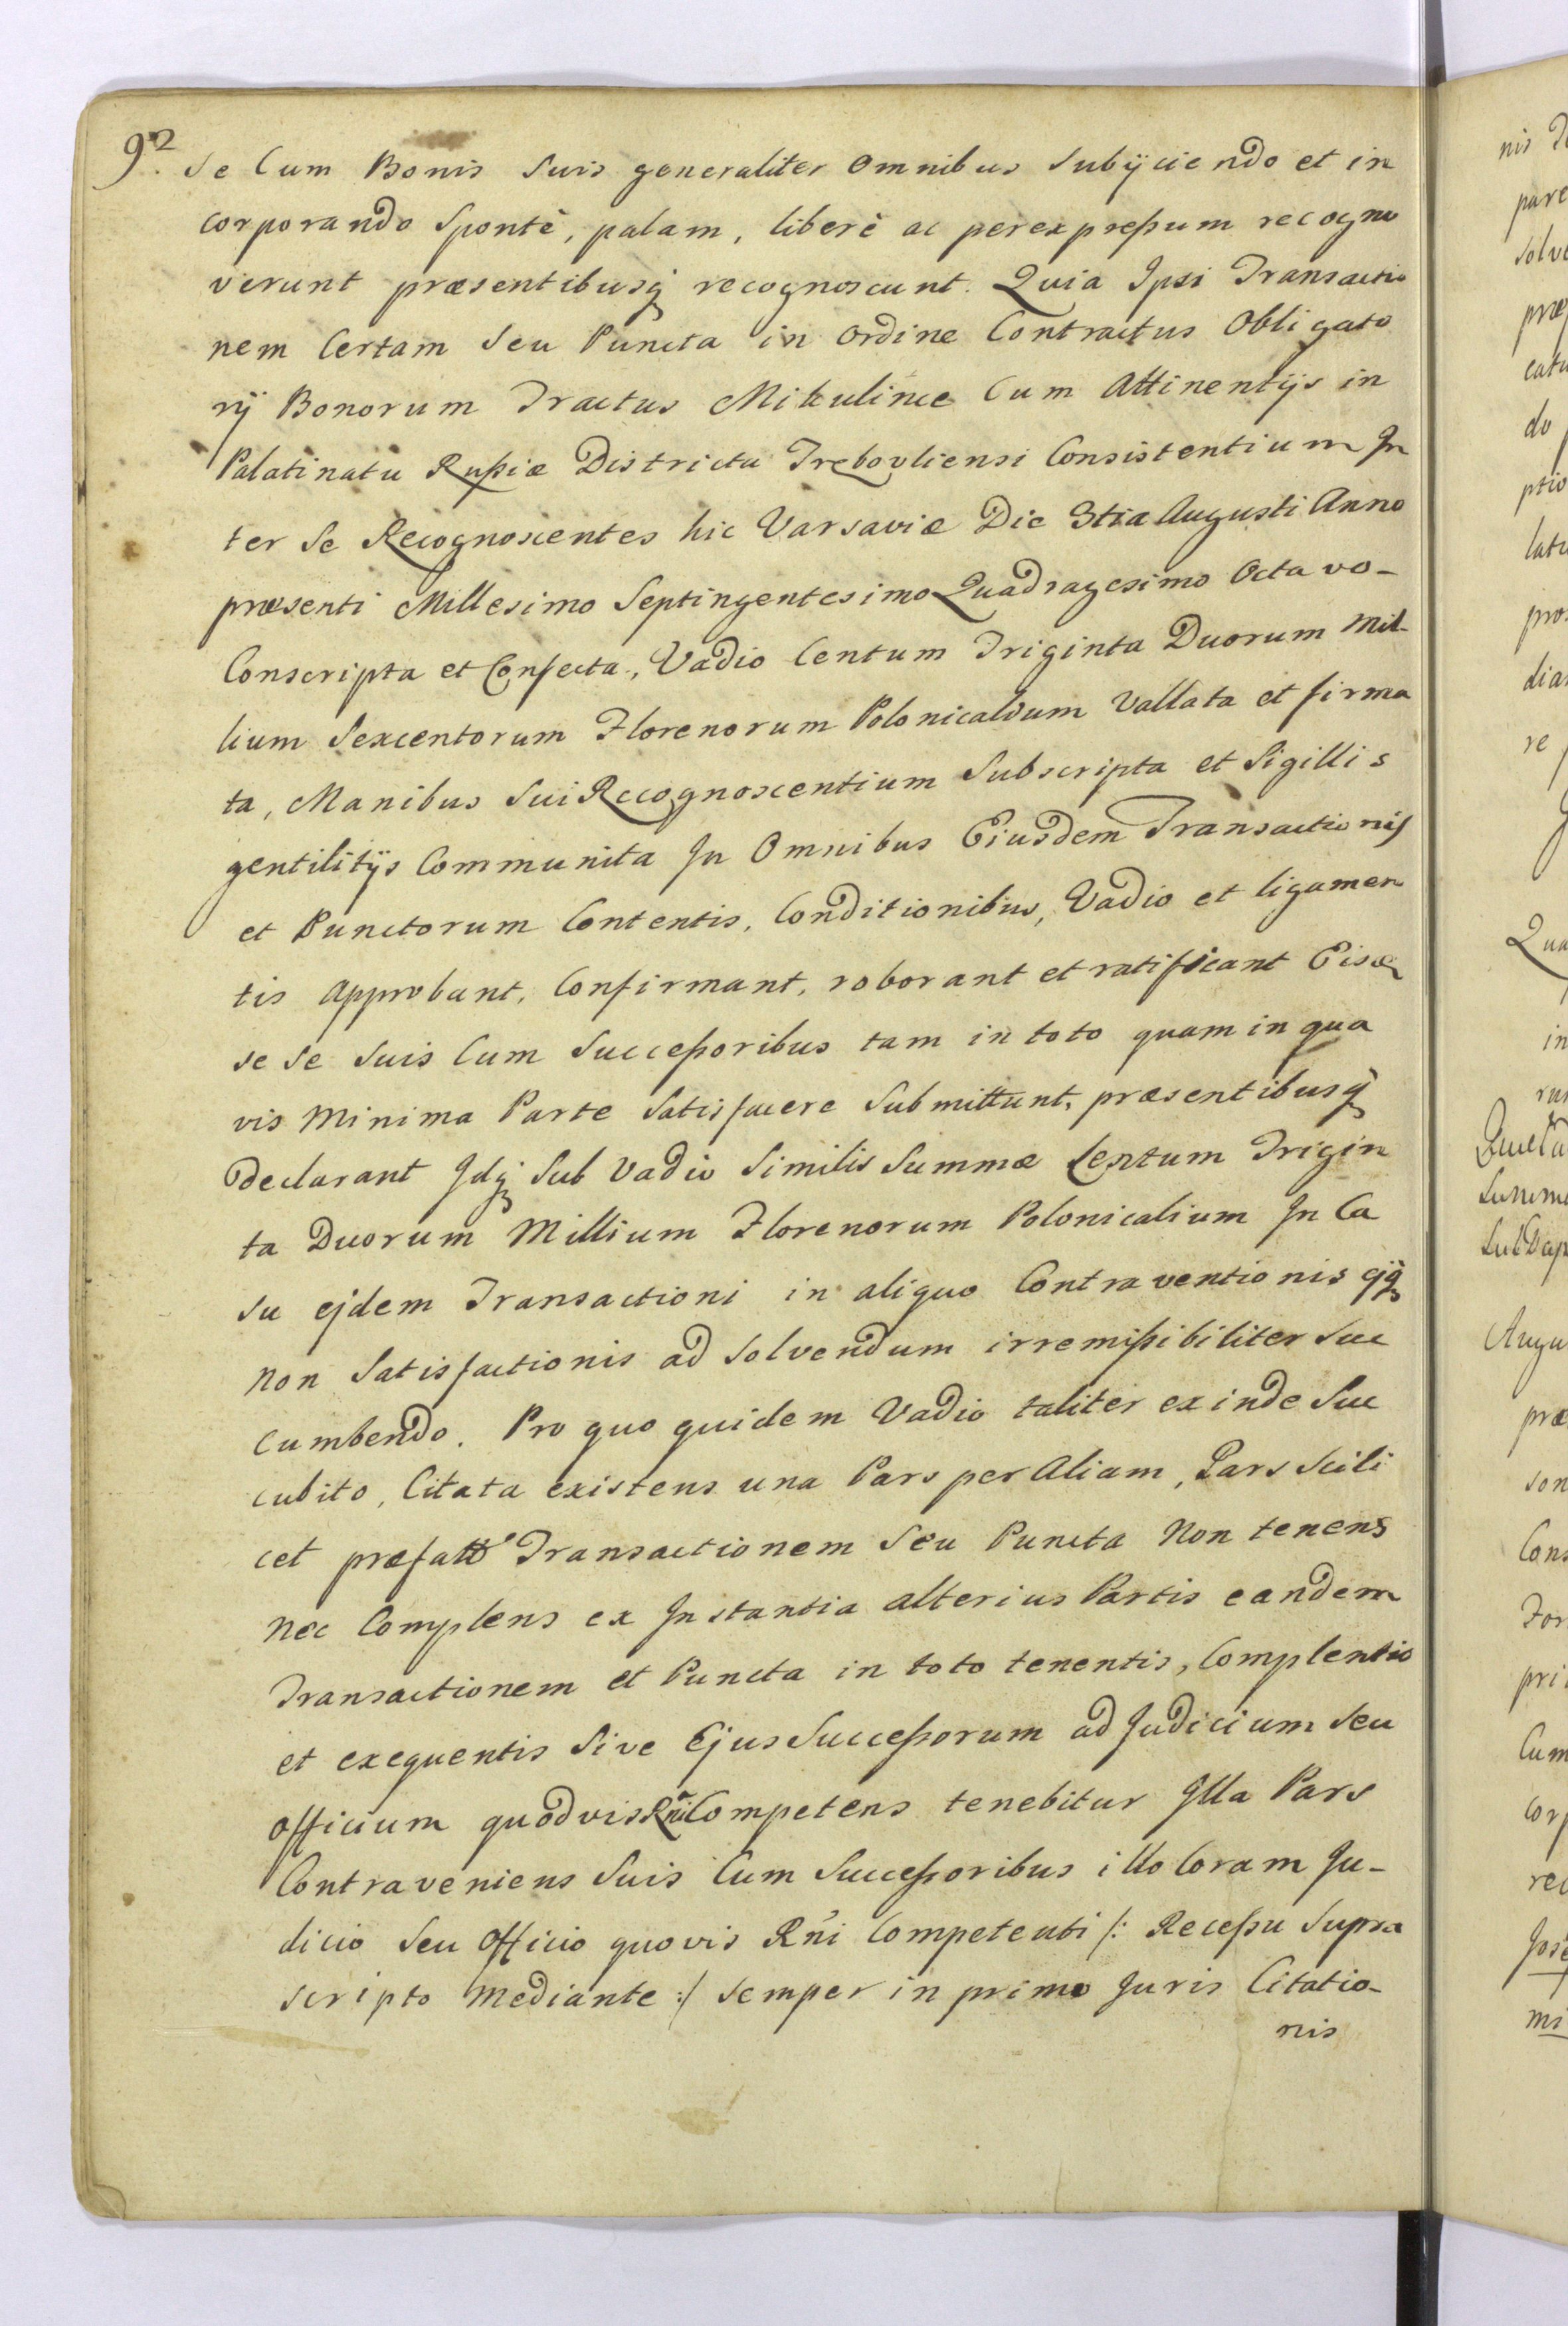 92.
Se Cum Bonis Suis generaliter Omnibus Subÿciendo et in
corporando Spontè, palam, liberè ac perexpreßum recogno
verunt præsentibusq́ recognoscunt. Quia Ipsi Transactio
nem Certam Seu Puncta in Ordine Contractus Obligato
rÿ Bonorum Tractus Mikulince Cum Attinentÿs in
Palatinatu Rußiæ Districtu Trebovliensi Consistentium In
ter Se Recognoscentes hic Varsaviæ Die 3tia Augusti Anno
præsenti Millesimo Septingentesimo Quadragesimo Octavo-
Conscripta et Confecta, Vadio Centum Triginta Duorum Mil-
lium Sexcentorum Florenorum Polonicalium Vallata et firma
ta, Manibus Sui Recognoscentium Subscripta et Sigillis
gentilitÿs Communita In Omnibus Eiusdem Transactionis
et Punctorum Contentis, Conditionibus, Vadio et ligamen
tis Approbant, Confirmant, roborant et ratificant Eisq
se se Suis Cum Succeßoribus tam in toto quam in qua
vis Minima Parte Satisfacere Submittunt, præsentibusq́
declarant Idq́ Sub Vadio Similis Summæ Centum Trigin
ta Duorum Millium Florenorum Polonicalium In Ca
su ejdem Transactioni in aliquo Contraventionis ejq́
non Satisfactionis ad Solvendum irremißibiliter Suc
cumbendo. Pro quo quidem Vadio taliter exinde Suc
cubito, Citata existens una Pars per Aliam, Pars Scili
cet præfatã Transactionem Seu Puncta Non tenens
Nec Complens ex Instantia alterius Partis eandem
Transactionem et Puncta in toto tenentis, Complentis
et exequentis Sive Ejus Succeßorum ad Judicium Seu
Officium quodvis Rñi Competens tenebitur Illa Pars
Contraveniens Suis Cum Succeßoribus illo Coram Ju-
dicio Seu Officio quovis Rñi Competenti /: Receßu Supra
scripto Mediante :/ Semper in primo Juris Citatio-
nis